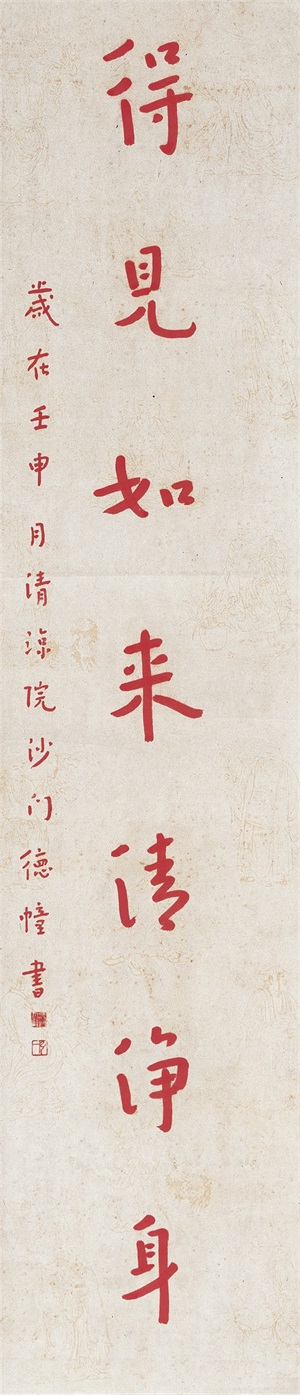 得見如来清淨身
歲在壬申月清涼院沙门德幢書